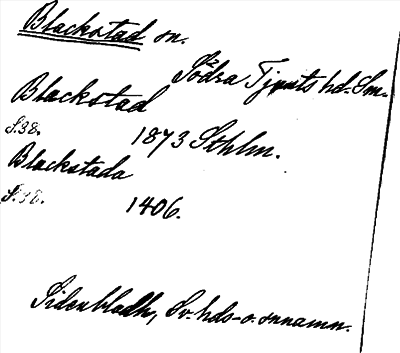 Blackstad sn.
Södra Tjusts hd. Sm.
Blackstad
S.38. 1873 Sthlm.
Blackstada
S.38. 1406.
Sidenbladh, Sv. hds- o. snnamn.